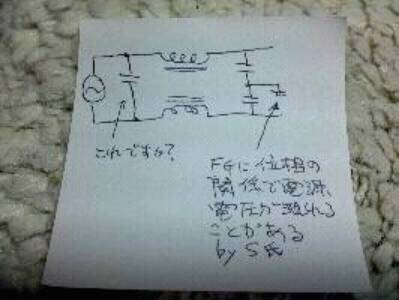 これですか?
FGに位相の
関係で電源
電圧が現れる
ことがある
by S氏